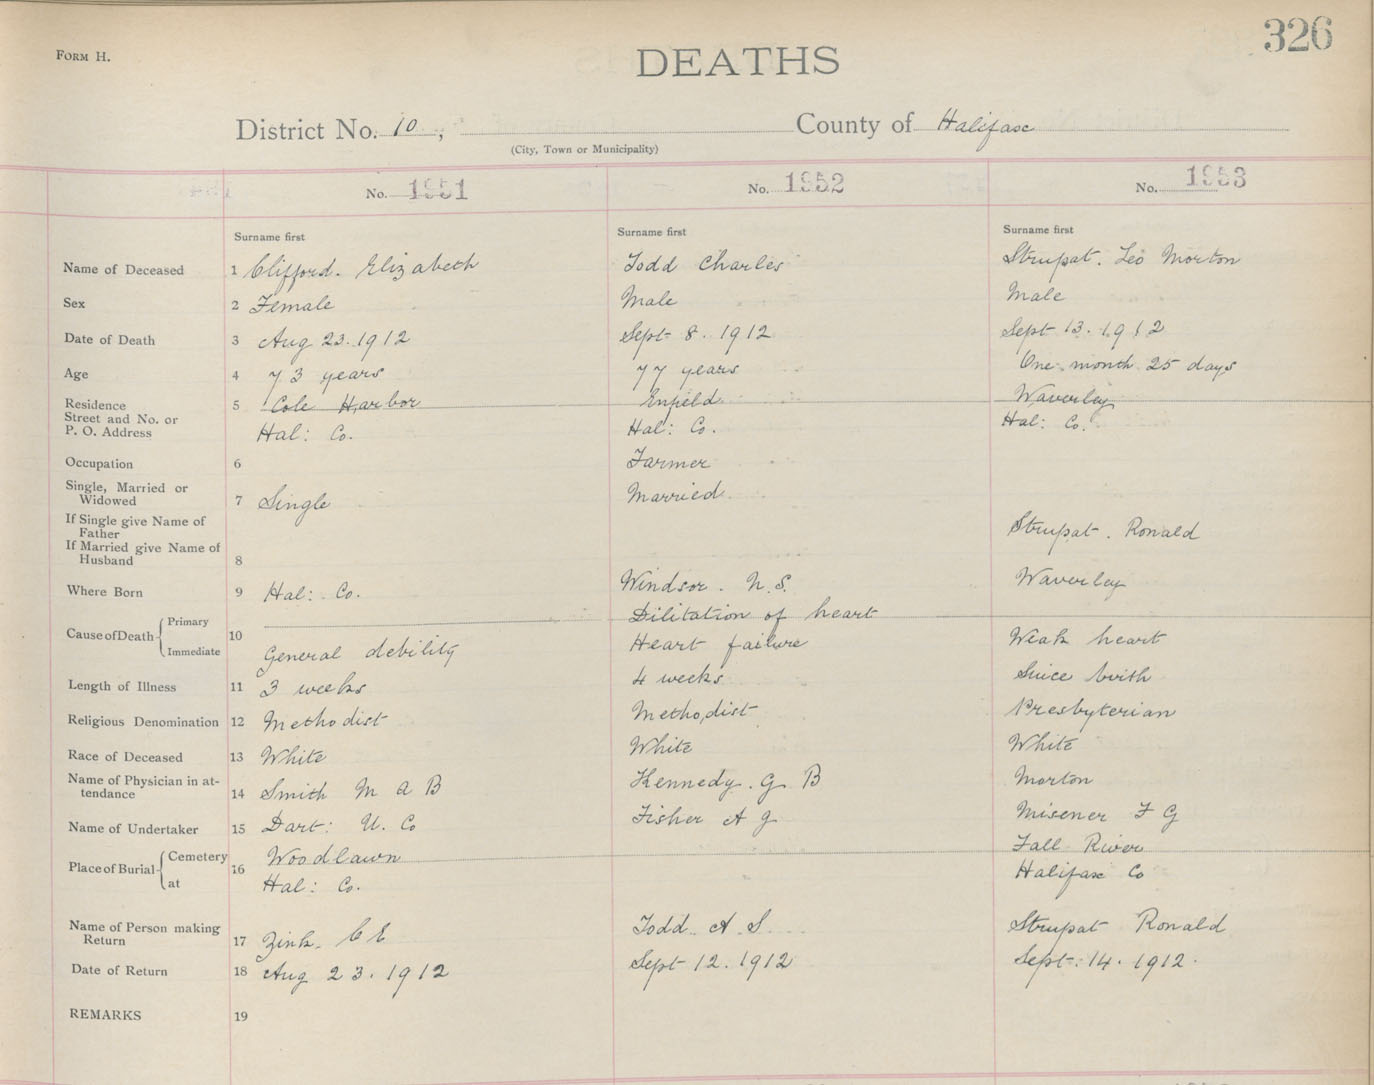 326
FORM H.
DEATHS
District No. 10, County of Halifax
(City, Town or Municipality)
No. 1951 No. 1952 No. 1953
Surname first Surname first Surname first
Name of Deceased 1 Clifford. Elizabeth Todd Charles Strupat. Leo Morton
Sex 2 Female Male Male
Date of Death 3 Aug 23. 1912 Sept 8. 1912 Sept 13. 1912
Age 4 73 years 77 years One month 25 days
Residence 5 Cole Harbor Enfield Waverley
Street and No. or
P. O. Address Hal: Co. Hal: Co. Hal: Co.
Occupation 6 Farmer
Single, Married or
Widowed 7 Single Married
If Single give Name of
Father Strupat. Ronald
If Married give Name of
Husband 8
Where Born 9 Hal: Co. Windsor. N.S. Waverley
Cause of Death Primary 10 Dilitation of heart
Immediate General debility Heart failure Weak heart
Length of Illness 11 3 weeks 4 weeks Since birth
Religious Denomination 12 Methodist Methodist Presbyterian
Race of Deceased 13 White White White
Name of Physician in at-
tendance 14 Smith M A B Kennedy. G B Morton
Name of Undertaker 15 Dart: U. Co Fisher A J Misener F G
Place of Burial Cemetery 16 Woodlawn Fall River
at Hal: Co. Halifax Co
Name of Person making
Return 17 Zink. C E Todd. A. S. Strupat Ronald
Date of Return 18 Aug 23. 1912 Sept 12. 1912 Sept. 14. 1912.
REMARKS 19